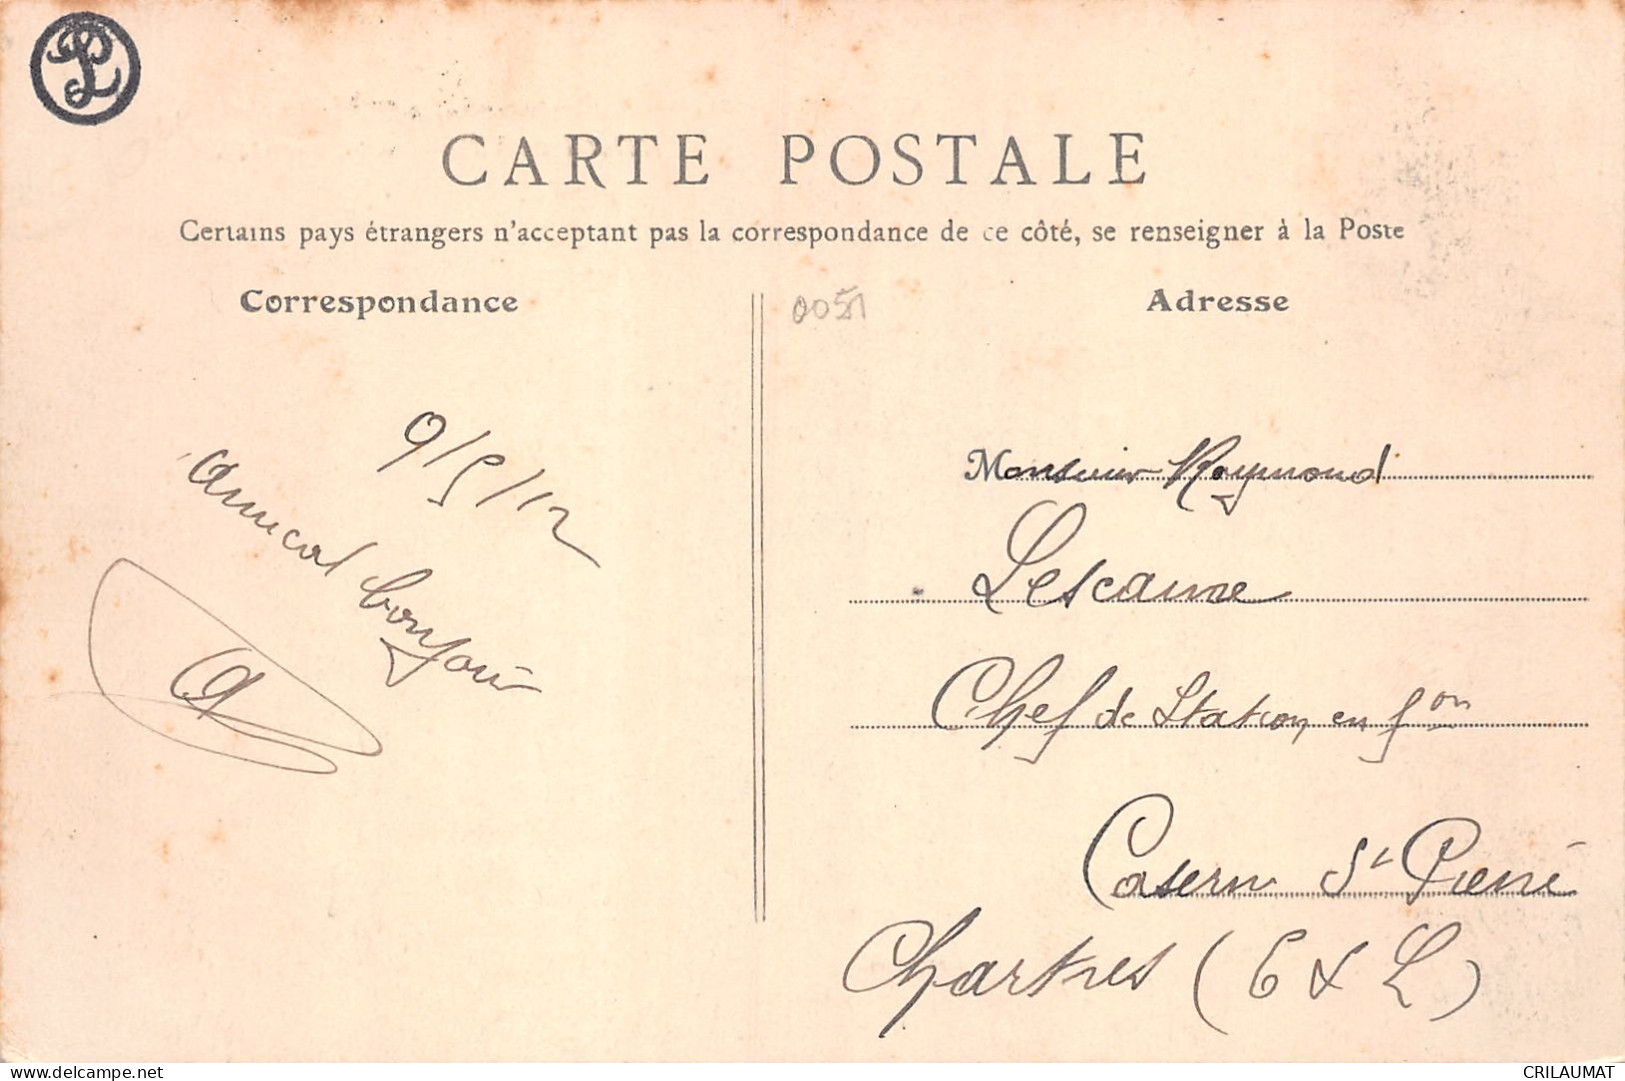 CARTE POSTALE
Certains pays étrangers n'acceptant pas la correspondance de ce côté, se renseigner à la Poste
Correspondance
0051
Adresse
9/5/12
amical bonjour
Monsieur Raymond
Chef de Station en fon
Caserne St Pierre
Chartres (E & L)
delcampe.net
CRILAUMAT